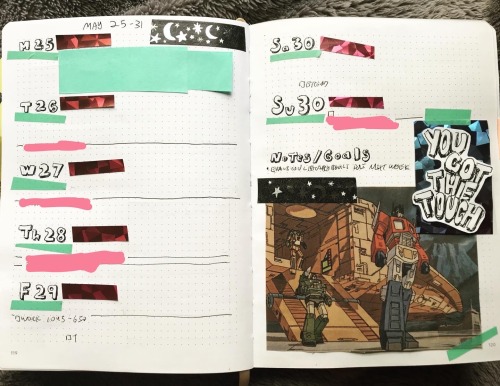 MAY 25-31
M 25
T 26
W 27
Th 28
F 29
WORK 1045-650
Sa 30
Su 30
Notes/Goals
NEXT WEEK
YOU
GOT
THE
TOUCH